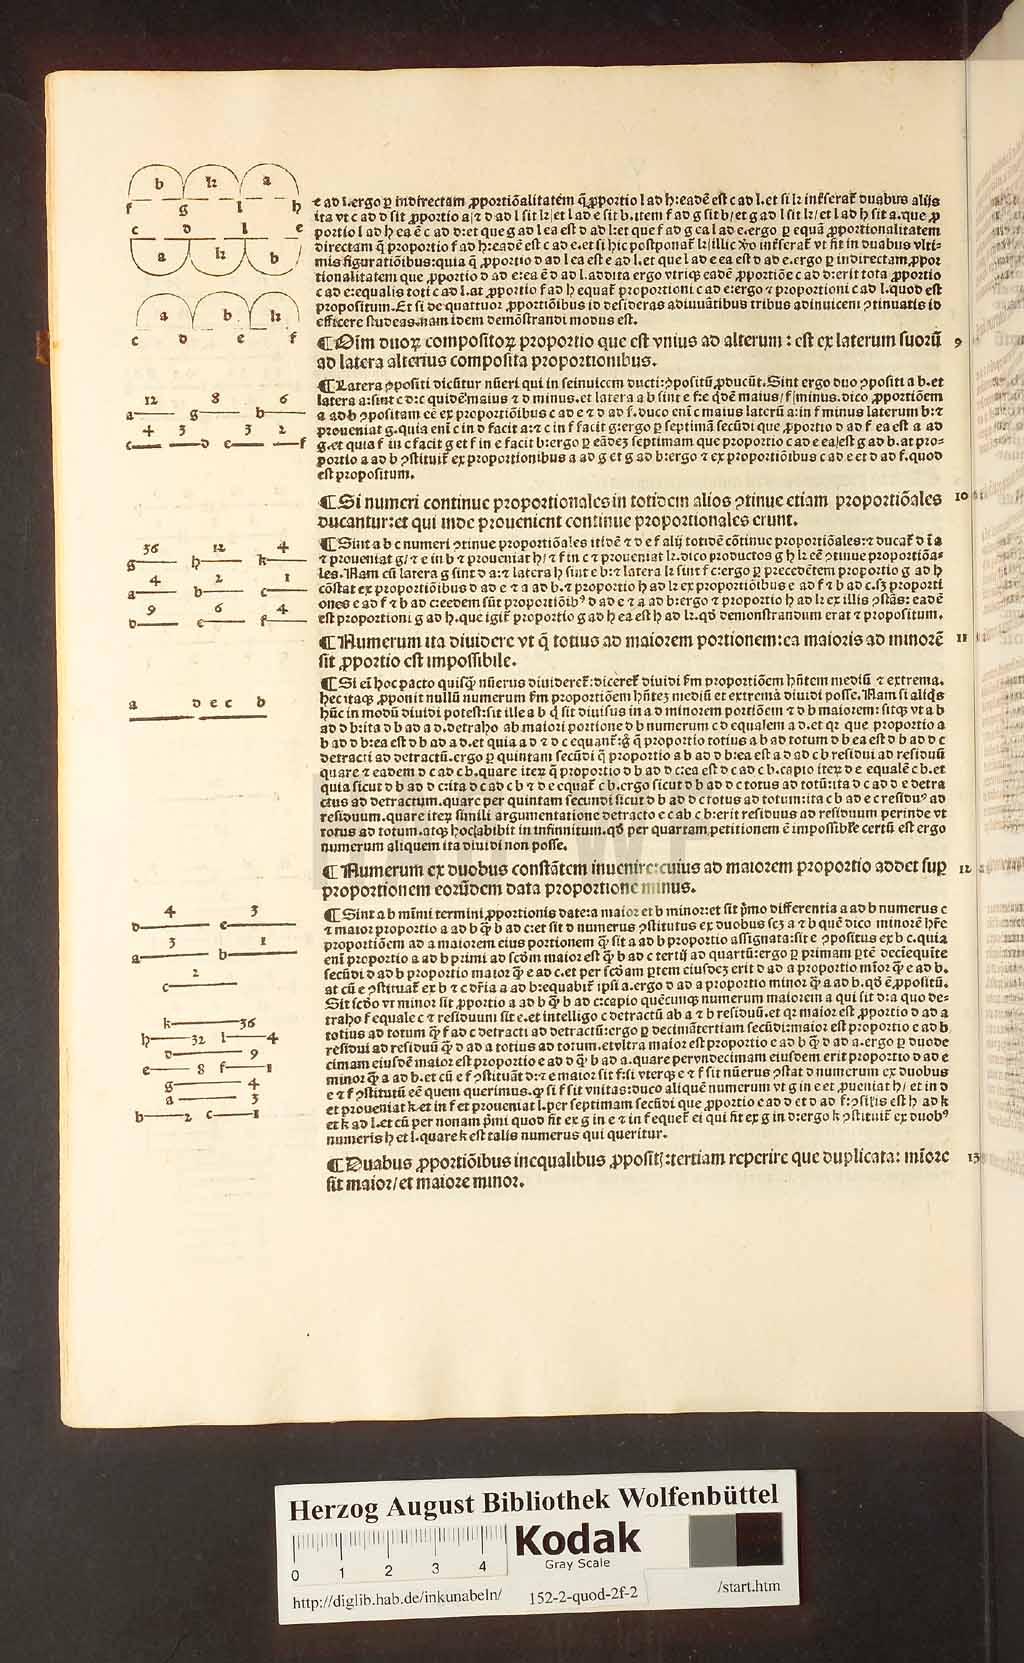 b k a
f g l h
c d l e
a k b
a b k
c d e f
e ad l.ergo ꝑ indirectam ꝓportiõalitatẽ q̃ ꝓportio l ad h:eadẽ est c ad l.et si k inẜerat᷑ duabus alijs
ita vt c ad d sit ꝓportio a/⁊ d ad l sit k/et l ad e sit b.item f ad g sit b/et g ad l sit k/et l ad h sit a.que ꝓ
portio l ad h ea ẽ c ad d:et que g ad l ea est d ad l:et que f ad g ea l ad e.ergo ꝑ equã ꝓportionalitatem
directam q̃ proportio f ad h:eadẽ est c ad e.et si hic postponat᷑ k/illic ẜo inẜerat᷑ vt fit in duabus vlti-
mis figuratiõibus:quia q̃ ꝓportio d ad l ea est e ad l.et que l ad e ea est d ad e.ergo ꝑ indirectam ꝓpor
tionalitatem que ꝓportio d ad e:ea ẽ d ad l.addita ergo vtriq₃ eadẽ ꝓportiõe c ad d:erit tota ꝓportio
c ad e:equalis toti c ad l.at ꝓportio f ad h equat᷑ proportioni c ad e:ergo ⁊ proportioni c ad l.quod est
propositum.Et si de quattuor ꝓportiõibus id desideras adiuuãtibus tribus adinuicem ꝯtinuatis id
efficere studeas.nam idem demõstrandi modus est.
¶ Oĩm duoꝝ compositoꝝ proportio que est vnius ad alterum : est ex laterum suorũ 9
ad latera alterius composita proportionibus.
12 8 6
a g b
4 3 3 2
c d e f
¶ Latera ꝯpositi dicũtur nũeri qui in seinuicem ducti:ꝯpositũ ꝓducũt.Sint ergo duo ꝯpositi a b.et
latera a:sint c d:c quidẽ maius ⁊ d minus.et latera a b sint e f:e q̇dẽ maius/f minus.dico ꝓportiõem
a ad b ꝯpositam eẽ ex proportiõibus c ad e ⁊ d ad f.duco enĩ c maius laterũ a:in f minus laterum b:⁊
proueniat g.quia enĩ c in d facit a:⁊ c in f facit g:ergo ꝑ septimã secũdi que ꝓportio d ad f ea est a ad
g.et quia f in c facit g et f in e facit b:ergo ꝑ eãdeʒ septimam que proportio c ad e ea est g ad b.at pro-
portio a ad b ꝯstituit᷑ ex proportionibus a ad g et g ad b:ergo ⁊ ex proportiõibus c ad e et d ad f.quod
est propositum.
¶ Si numeri continue proportionales in totidem alios ꝯtinue etiam proportiõales 10
ducantur:et qui inde prouenient continue proportionales erunt.
36 12 4
g h k
4 2 1
a b c
9 6 4
d e f
¶ Sint a b c numeri ꝯtinue proportiõales itidẽ ⁊ d e f alij totidẽ cõtinue proportiõales:⁊ ducat᷑ d ĩ a
⁊ proueniat g/⁊ e in b ⁊ proueniat h/⁊ f in c ⁊ proueniat k.dico productos g h k eẽ ꝯtinue proportiõa-
les.Nam cũ latera g sint d a:⁊ latera h sint e b:⁊ latera k sint f c:ergo ꝑ precedẽtem proportio g ad h
cõstat ex proportiõibus d ad e ⁊ a ad b.⁊ proportio h ad k ex proportiõibus e ad f ⁊ b ad c.sʒ proporti
ones e ad f ⁊ b ad c:eedem sũt proportiõibꝰ d ad e ⁊ a ad b:ergo ⁊ proportio h ad k ex illis ꝯstãs: eadẽ
est proportioni g ad h.que igit᷑ proportio g ad h ea est h ad k.qđ demonstrandum erat ⁊ propositum.
¶ Numerum ita diuidere vt q̃ totius ad maiorem portionem:ea maioris ad minorẽ 11
sit ꝓportio est impossibile.
a d e c b
¶ Si eĩ hoc pacto quisq̃ nũerus diuideret᷑:diceret᷑ diuidi ẜm proportiõem hñtem mediũ ⁊ extrema.
hec itaq₃ ꝓponit nullũ numerum ẜm proportiõem hñteʒ mediũ et extremã diuidi posse.Nam si aliq̇s
hũc in modũ diuidi potest:sit ille a b q̇ sit diuisus in a d minorem portiõem ⁊ d b maiorem: sitq₃ vt a b
ad d b:ita d b ad a d.detraho ab maiori portione d b numerum c d equalem a d.et qꝛ que proportio a
b ad d b:ea est d b ad a d.et quia a d ⁊ d c equant᷑:g̊ q̃ proportio totius a b ad totum d b ea est d b ad d c
detracti ad detractũ.ergo ꝑ quintam secũdi q̃ proportio a b ad d b:ea est a d ad c b residui ad residuũ
quare ⁊ eadem d c ad c b.quare iteꝝ q̃ proportio d b ad d c:ea est d c ad c b.capio iteꝝ d e equalẽ c b.et
quia sicut d b ad d c:ita d c ad c b ⁊ d e equat᷑ c b.ergo sicut d b ad d c totus ad totũ:ita d c ad d e detra
ctus ad detractum.quare per quintam secundi sicut d b ad d c totus ad totum:ita c b ad e c residuꝰ ad
residuum.quare iteꝝ simili argumentatione detracto e c ab c b:erit residuus ad residuum perinde vt
totus ad totum.atq₃ hoc abibit in infinnitum.qđ per quartam petitionem ẽ impossibile certũ est ergo
numerum aliquem ita diuidi non posse.
¶ Numerum ex duobus constãtem inuenire:cuius ad maiorem proportio addet suꝑ 12
proportionem eorũdem data proportione minus.
4 3
d e
3 1
a b
2
c
k 36
h 32 l 4
d 9
e 8 f 1
g 4
a 3
b 2 c 1
¶ Sint a b mĩmi termini ꝓportionis date:a maior et b minor:et sit p̃mo differentia a ad b numerus c
⁊ maior proportio a ad b q̃ b ad c:et sit d numerus ꝯstitutus ex duobus scʒ a ⁊ b quẽ dico minorẽ hr̃e
proportiõem ad a maiorem eius portionem q̃ sit a ad b proportio assignata:sit e ꝯpositus ex b c.quia
enĩ proportio a ad b primi ad scđm maior est q̃ b ad c tertij ad quartũ:ergo ꝑ primam ꝑtẽ decieq̃ute
secũdi d ad b proportio maior q̃ e ad c.et per scđam ꝑtem eiusdeʒ erit d ad a proportio mĩor q̃ e ad b.
at cũ e ꝯstituat᷑ ex b ⁊ c dr̃ia a ad b:equabit᷑ ipsi a.ergo d ad a proportio minor q̃ a ad b.qđ ẽ ꝓpositũ.
Sit scđo vt minor sit ꝓportio a ad b q̃ b ad c:capio quẽcunq₃ numerum maiorem a qui sit d:a quo de-
traho f equale c ⁊ residuum sit e.et intelligo c detractũ ab a ⁊ b residuũ.et qꝛ maior est ꝓportio d ad a
totius ad totum q̃ f ad c detracti ad detractũ:ergo ꝑ decimãtertiam secũdi:maior est proportio e ad b
residui ad residuũ q̃ d ad a totius ad totum.et vltra maior est proportio e ad b q̃ d ad a.ergo ꝑ duode
cimam eiusdẽ maior est proportio e ad d q̃ b ad a.quare per vndecimam eiusdem erit proportio d ad e
minor q̃ a ad b.et cũ e f ꝯstituãt d:⁊ e maior sit f:si vterq₃ e ⁊ f sit nũerus ꝯstat d numerum ex duobus
e ⁊ f ꝯstitutũ eẽ quem querimus.ꝙ si f sit vnitas:duco aliquẽ numerum vt g in e et ꝓueniat h/ et in d
et proueniat k.et in f et proueniat l.per septimam secũdi que ꝓportio e ad d et d ad f:ꝯsilis est h ad k
et k ad l.et cũ per nonam p̃mi quod fit ex g in e ⁊ in f equet᷑ ei qui fit ex g in d:ergo k ꝯstituit᷑ ex duobꝰ
numeris h et l.quare k est talis numerus qui queritur.
¶ Duabus ꝓportiõibus inequalibus ꝓpositis:tertiam reperire que duplicata: mĩore 13
sit maior/et maiore minor.
Herzog August Bibliothek Wolfenbüttel
Kodak
Gray Scale
0 1 2 3 4
http://diglib.hab.de/inkunabeln/ 152-2-quod-2f-2 /start.htm